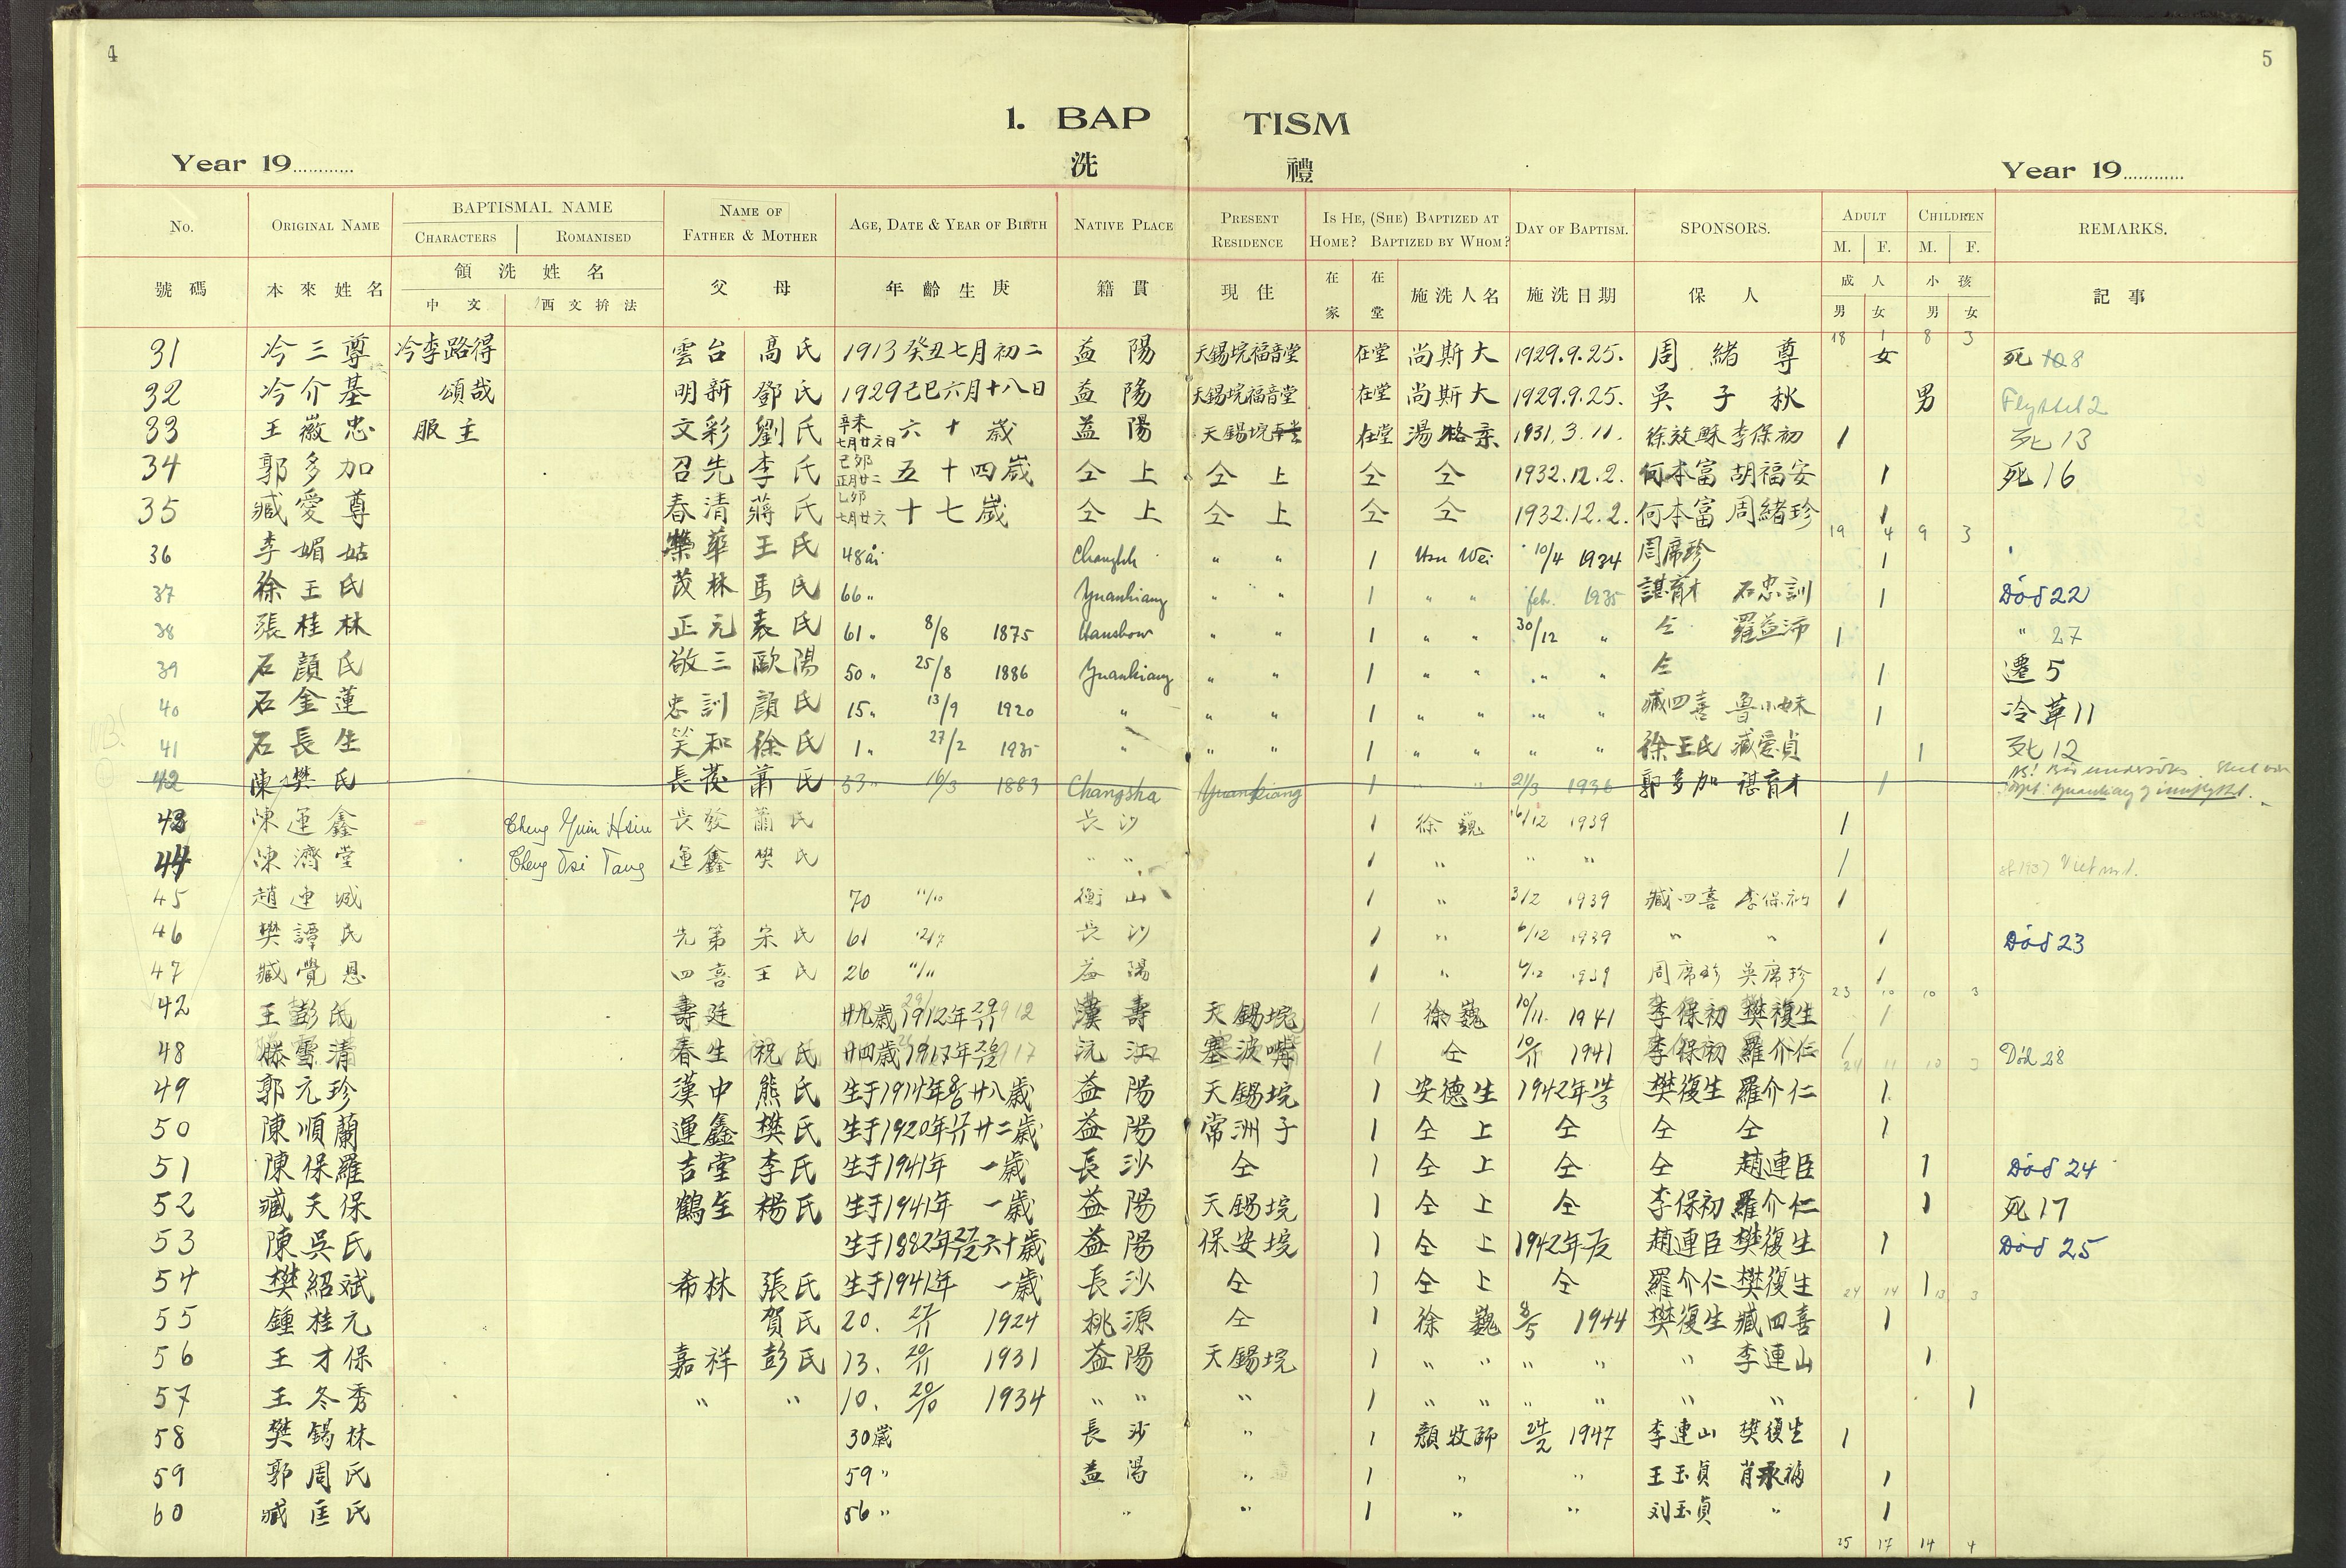 4
5
1. BAP TISM
Year 19............ 洗 禮 Year 19............
No. ORIGINAL NAME BAPTISMAL NAME NAME OF FATHER & MOTHER AGE, DATE & YEAR OF BIRTH NATIVE PLACE PRESENT RESIDENCE IS HE, (SHE) BAPTIZED AT HOME? BAPTIZED BY WHOM? DAY OF BAPTISM. SPONSORS. ADULT CHILDREN REMARKS.
CHARACTERS ROMANISED M. F. M. F.
號碼 本來姓名 領洗姓名 父 母 年齡生庚 籍貫 現住 在家 在堂 施洗人名 施洗日期 保人 成人 小孩 記事
中文 西文拚法 男 女 男 女
18 1 8 3
31 冷三尊 冷李路得 雲台 高氏 1913癸丑七月初二 益陽 天錫垸福音堂 在堂 尚斯大 1929.9.25. 周緒尊 女 死 8
32 冷介基 頌哉 明新 鄧氏 1929己巳六月十八日 益陽 天錫垸福音堂 在堂 尚斯大 1929.9.25. 吳子秋 男 Flyttet 2
33 王徽忠 服主 文彩 劉氏 辛未七月廿六日 六十歲 益陽 天錫垸 在堂 湯格亲 1931.3.11. 徐效穌 李保初 1 死13
34 郭多加 召先 李氏 己卯正月廿二 五十四歲 仝上 仝上 仝 仝 1932.12.2. 何本富 胡福安 1 死16
35 臧愛尊 春清 蔣氏 乙卯七月廿六 十七歲 仝上 仝上 仝 仝 1932.12.2. 何本富 周緒珍 1
19 4 9 3
36 李媚姑 榮華 王氏 48år " " 1 Hsu Wei 10/4 1934 周席珍 1
37 徐王氏 茂林 馬氏 66 " Yuankiang " " 1 " " feb. 1935 諶育才 石忠訓 1 Död 22
38 張桂林 正元 袁氏 61 " 8/8 1875 Hanshow " " 1 " " 30/12 " 仝 羅益沛 1 " 27
39 石顔氏 敬三 歐陽 50 " 25/8 1886 Yuankiang " " 1 " " " " 仝 1 遷5
40 石金蓮 忠訓 顔氏 15 " 13/9 1920 " " " 1 " " " " 臧四喜 魯小妹 1 冷草11
41 石長生 笑和 徐氏 1 " 27/2 1935 " " " 1 " " " " 徐王氏 臧愛貞 1 死12
42 陳樊氏 長發 蕭氏 53 " 16/3 1883 Changsha Yuankiang 1 " " 21/3 1936 郭多加 諶育才 1
43 陳運鑫 Cheng Yuin Hsin 長發 蕭氏 長沙 1 徐巍 16/12 1939 1
44 陳濟堂 Cheng Tsi Tang 運鑫 樊氏 " " 1 " " " 1
45 趙連城 70 11/10 衡山 1 " 3/2 1939 臧四喜 李保初 1
46 樊譚氏 先第 宋氏 61 長沙 1 " 6/12 1939 " " 1 Död 23
47 臧覺恩 四喜 王氏 26 11/11 益陽 1 " 6/12 1939 周席珍 吳席珍 1
23 10 10 3
42 王彭氏 壽廷 廿九歲1912年29/11 漢壽 天錫垸 1 徐巍 10/11 1941 李保初 樊復生 1
48 滕雪清 春生 祝氏 廿四歲1917年26/12 沅江 塞波嘴 1 仝 10/11 1941 李保初 羅介仁 1 Död 28
24 11 10 3
49 郭元珍 漢中 熊氏 生于1914年8/8廿八歲 益陽 天錫垸 1 安德生 1942年15/3 樊復生 羅介仁 1
50 陳順蘭 運鑫 樊氏 生于1920年17/11廿二歲 益陽 常洲子 1 仝上 仝 仝 仝 1
51 陳保羅 吉堂 李氏 生于1941年 一歲 長沙 仝 1 仝上 仝 仝 趙連臣 1 Död 24
52 臧天保 鶴全 楊氏 生于1941年 一歲 益陽 天錫垸 1 仝上 仝 李保初 羅介仁 1 死17
53 陳吳氏 生于1882年27/12六十歲 益陽 保安垸 1 仝上 1942年 趙連臣 樊復生 1 Död 25
54 樊紹斌 希林 張氏 生于1941年 一歲 長沙 仝 1 仝上 仝 羅介仁 樊復生 1
24 14 13 3
55 鍾桂元 賀氏 20. 27/11 1924 桃源 仝 1 徐巍 8/5 1944 樊復生 臧四喜 1
56 王才保 嘉祥 彭氏 13. 20/11 1931 益陽 天錫垸 1 " " " " " 李連山 1
57 王冬秀 " " 10. 20/10 1934 " " " 1 " " " " " " 1
58 樊錫林 30歲 長沙 " 1 顏牧師 24/2 1947 李連山 樊復生 1
59 郭周氏 59 " 益陽 " 1 " " 王玉貞 肖承福 1
60 臧匡氏 56 " " " 1 " " 刘玉貞 " 1
25 17 14 4